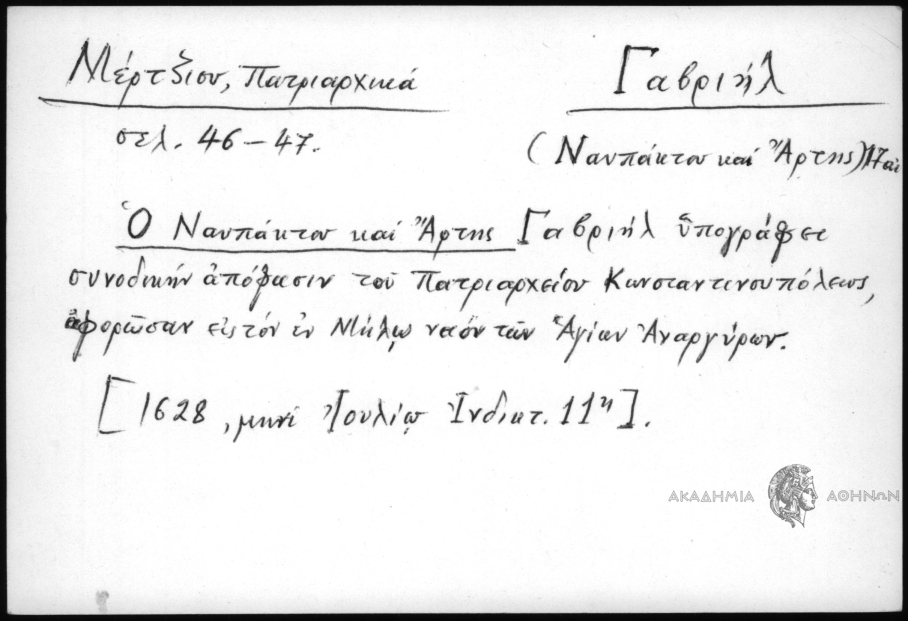 Μέρτζιου, Πατριαρχικά
σελ. 46-47.
Γαβριήλ
(Ναυπάκτου καί Ἄρτης) 17 αἰ
Ὁ Ναυπάκτου καί Ἄρτης Γαβριήλ ὑπογράφει
συνοδικήν ἀπόφασιν τοῦ Πατριαρχείου Κωνσταντινουπόλεως,
ἀφορῶσαν εἰς τόν ἐν Μήλῳ ναόν τῶν Ἁγίων Ἀναργύρων.
[1628, μηνί Ἰουλίῳ Ἰνδικτ. 11η].
ΑΚΑΔΗΜΙΑ ΑΘΗΝΩΝ